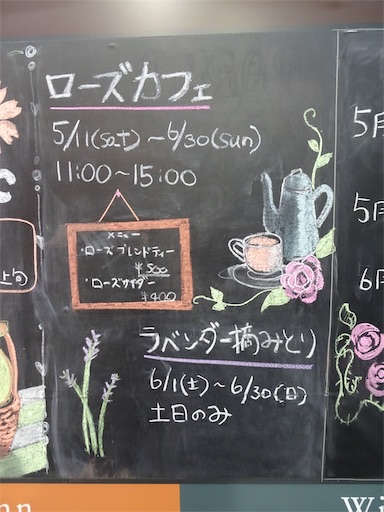 ローズカフェ
5/11(sat)~6/30(sun)
11:00~15:00
メニュー
・ローズブレンドティー
¥500
・ローズサイダー
¥400
ラベンダー摘みとり
6/1(土)~6/30(日)
土日のみ
上旬
5月
5月
6月
nn
Wi